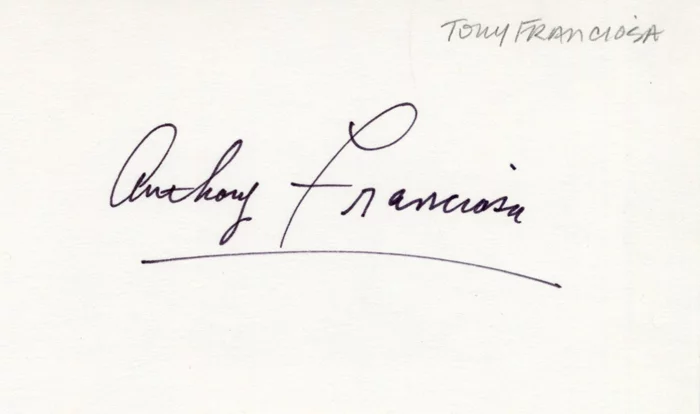 Tony Franciosa
Anthony Franciosa